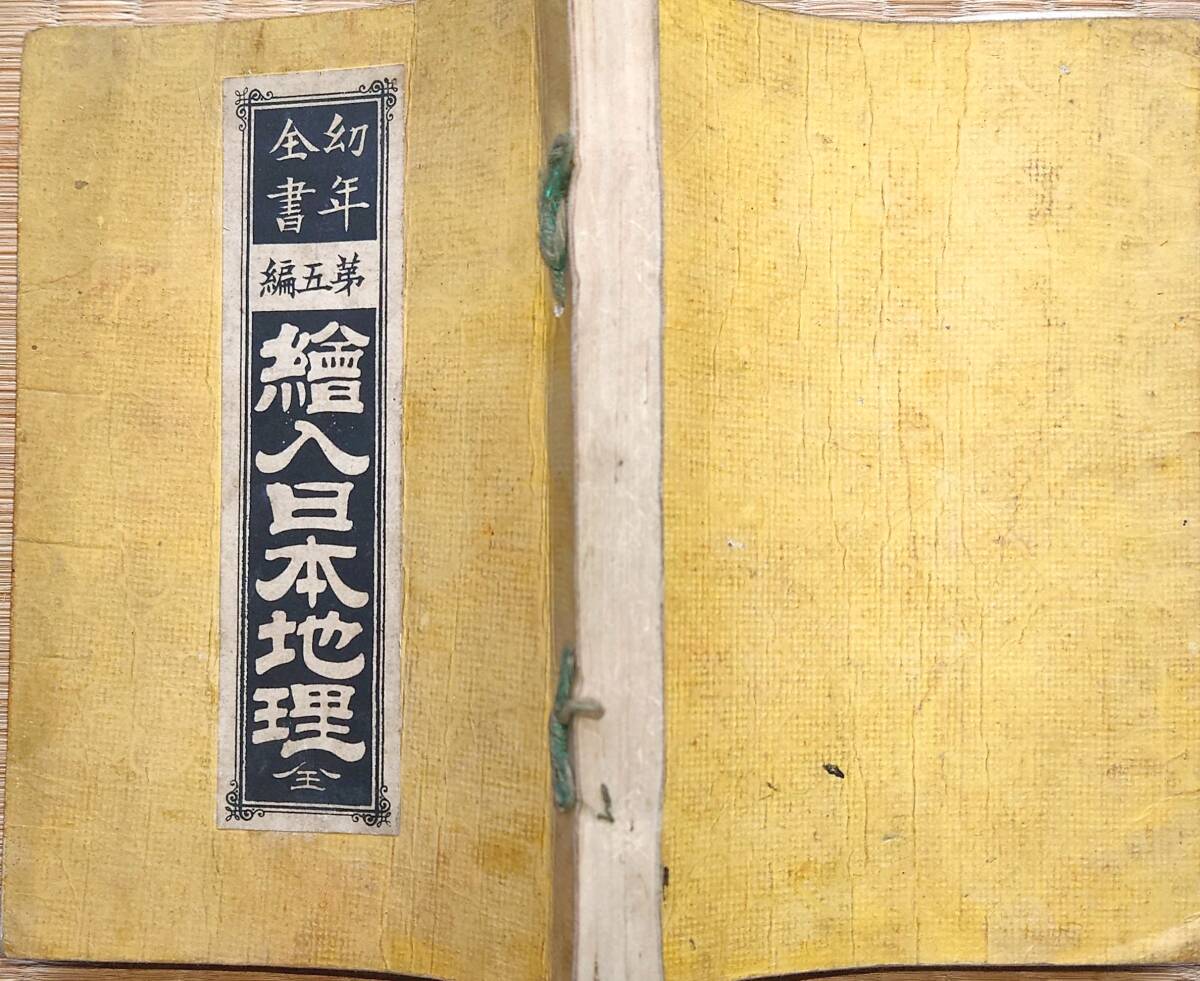 幼年
全書
第五編
繪入日本地理
全